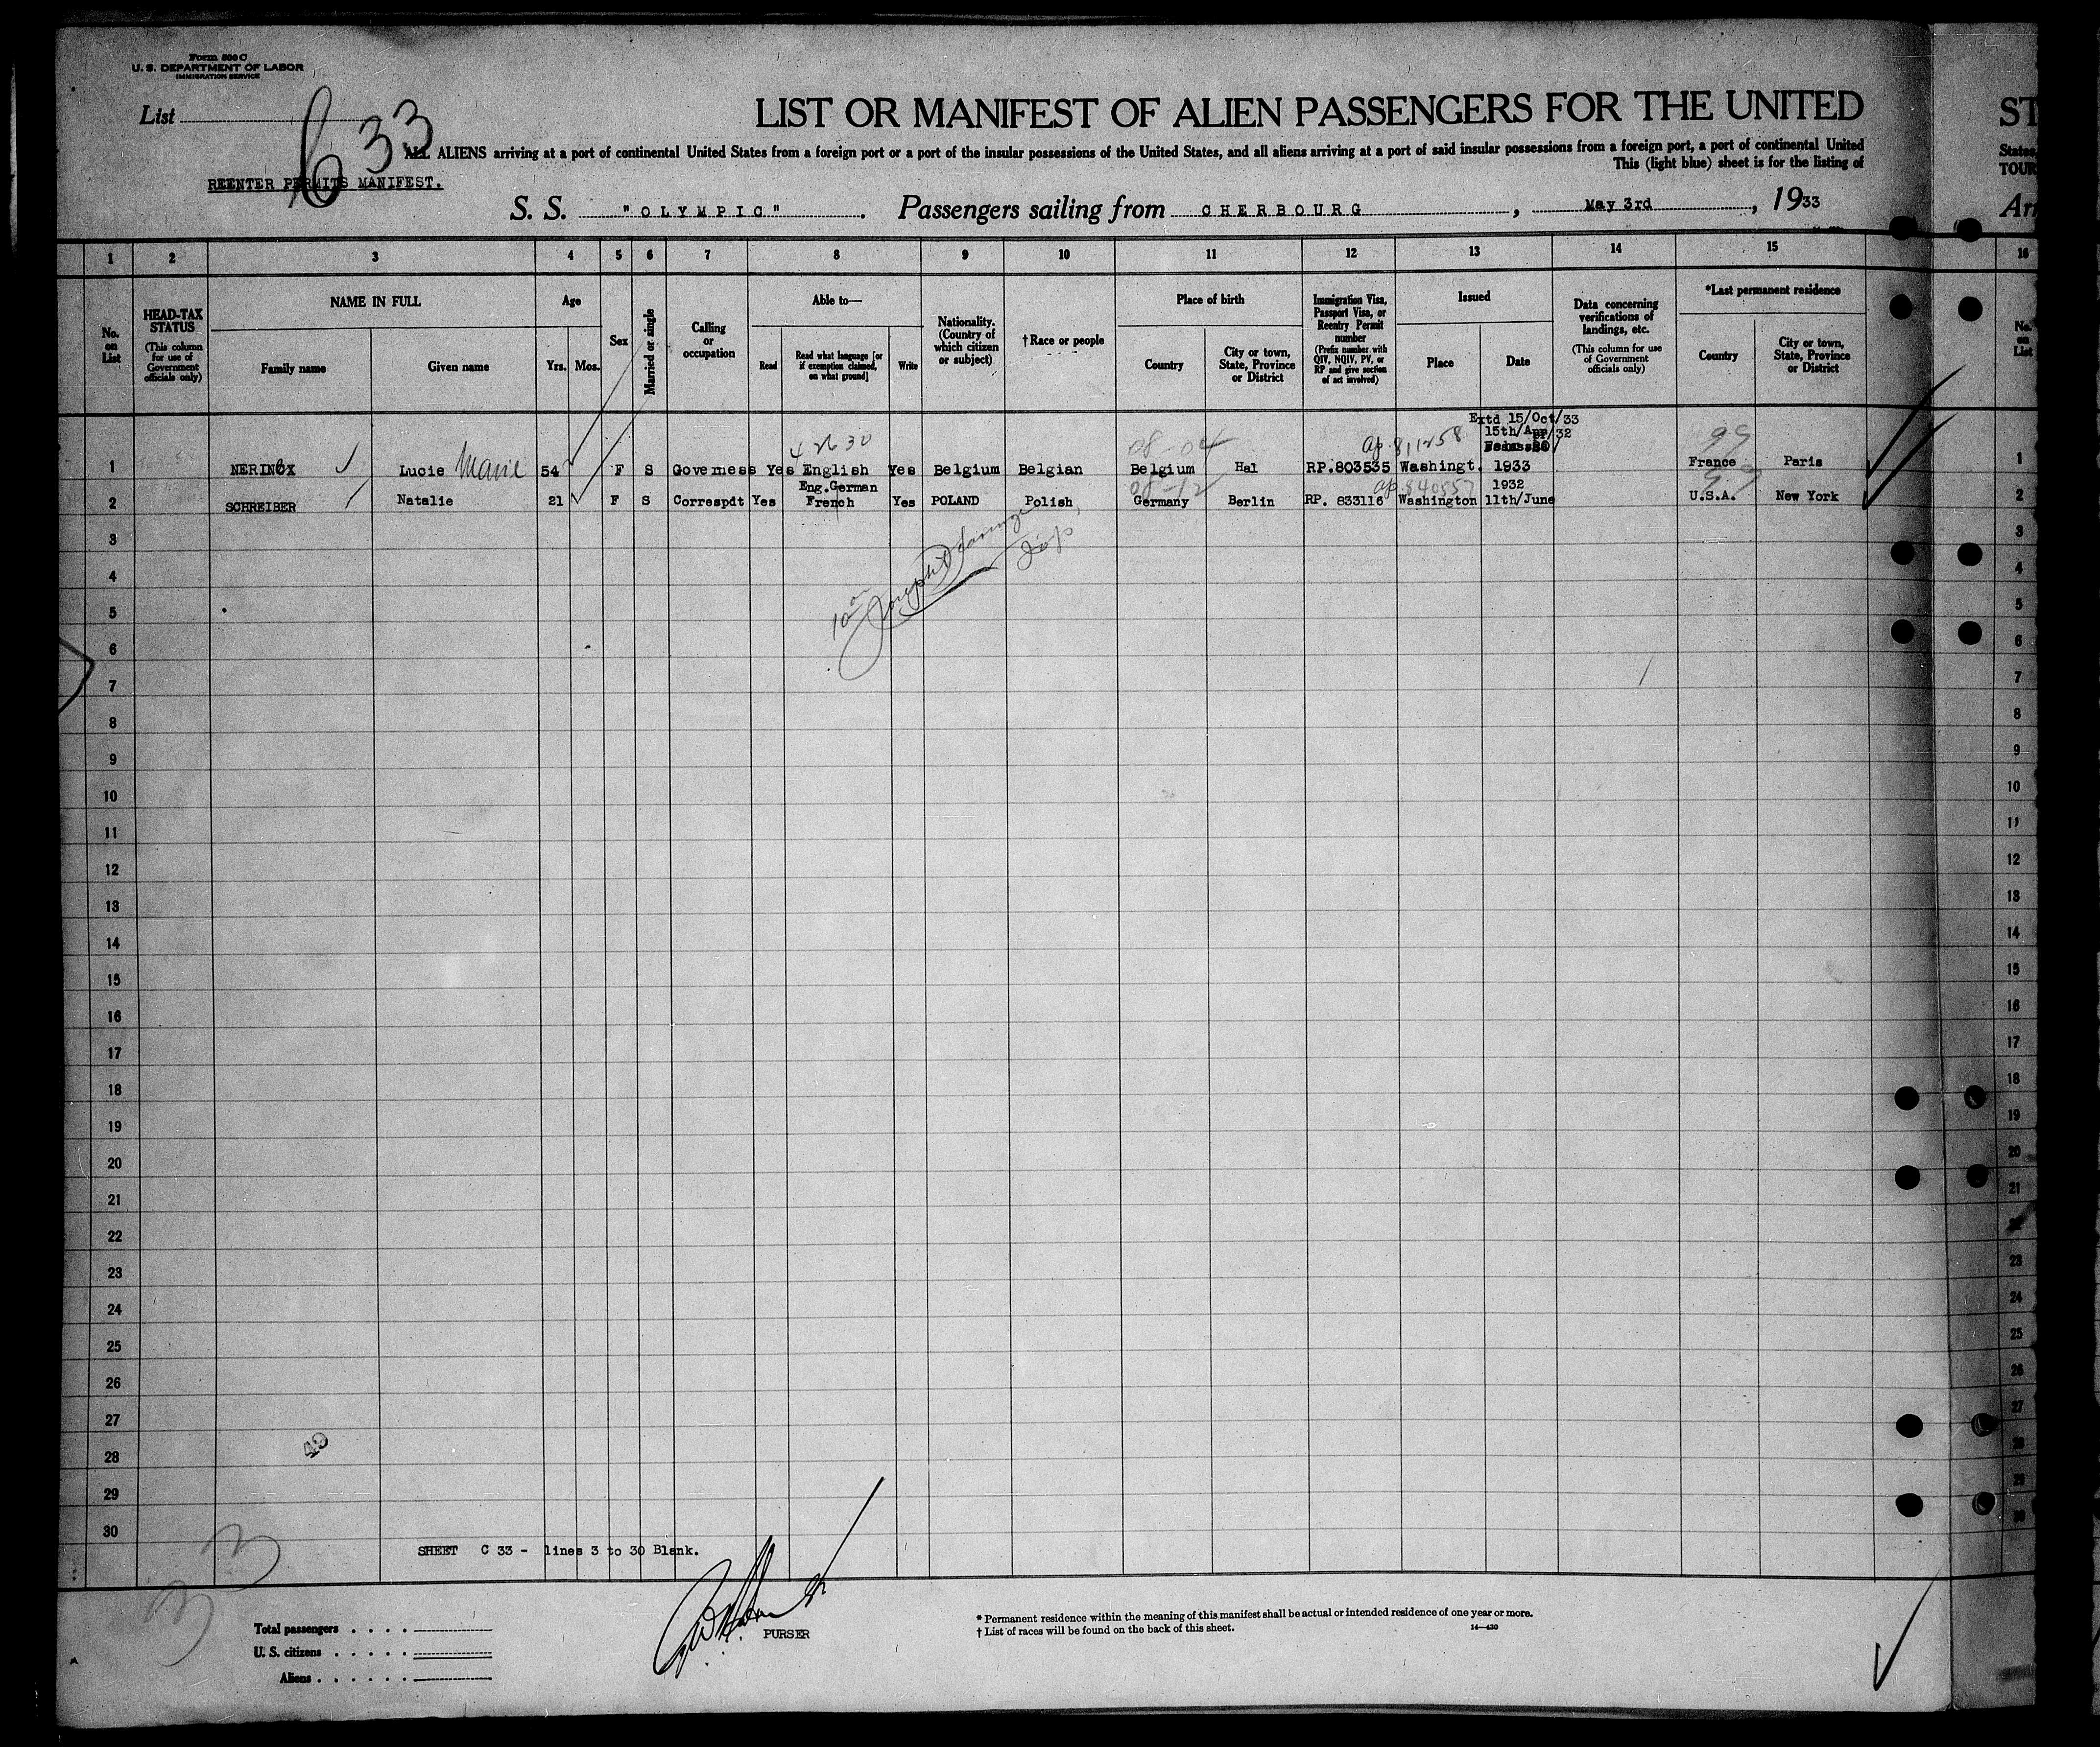 Form 500 C
U. S. DEPARTMENT OF LABOR
IMMIGRATION SERVICE
List
633
LIST OR MANIFEST OF ALIEN PASSENGERS FOR THE UNITED
ST
ALL ALIENS arriving at a port of continental United States from a foreign port or a port of the insular possessions of the United States, and all aliens arriving at a port of said insular possessions from a foreign port, a port of continental United
States
This (light blue) sheet is for the listing of
TOUR
REENTER PERMITS MANIFEST.
S. S. "OLYMPIC". Passengers sailing from CHERBOURG, May 3rd, 1933
Arr
1 2 3 4 5 6 7 8 9 10 11 12 13 14 15 16
No. on List
HEAD-TAX STATUS
(This column for use of Government officials only)
NAME IN FULL
Family name
Given name
Age
Yrs. Mos.
Sex
Married or single
Calling or occupation
Able to—
Read
Read what language [or if exemption claimed, on what ground]
Write
Nationality. (Country of which citizen or subject)
†Race or people
Place of birth
Country
City or town, State, Province or District
Immigration Visa, Passport Visa, or Reentry Permit number
(Prefix number with QIV, NQIV, PV, or RP and give section of act involved)
Issued
Place
Date
Data concerning verifications of landings, etc.
(This column for use of Government officials only)
*Last permanent residence
Country
City or town, State, Province or District
No. on List
Extd 15/Oct/33
15th/Apr/32
4 26 30
08-04
99
1 NERINCX Lucie Marie 54 F S Governess Yes English Yes Belgium Belgian Belgium Hal RP.803535 Washingt. 1933 France Paris 1
Eng.German
08-12
1932
2 SCHREIBER Natalie 21 F S Correspdt Yes French Yes POLAND Polish Germany Berlin RP. 833116 Washington 11th/June U.S.A. New York 2
3 3
4 4
5 5
6 6
7 7
8 8
9 9
10 10
11 11
12 12
13 13
14 14
15 15
16 16
17 17
18 18
19 19
20 20
21 21
22
23 23
24 24
25 25
26 26
27 27
28 28
29 29
30 30
49
SHEET C 33 - lines 3 to 30 Blank.
PURSER
Total passengers
U. S. citizens
Aliens
* Permanent residence within the meaning of this manifest shall be actual or intended residence of one year or more.
† List of races will be found on the back of this sheet.
14—430